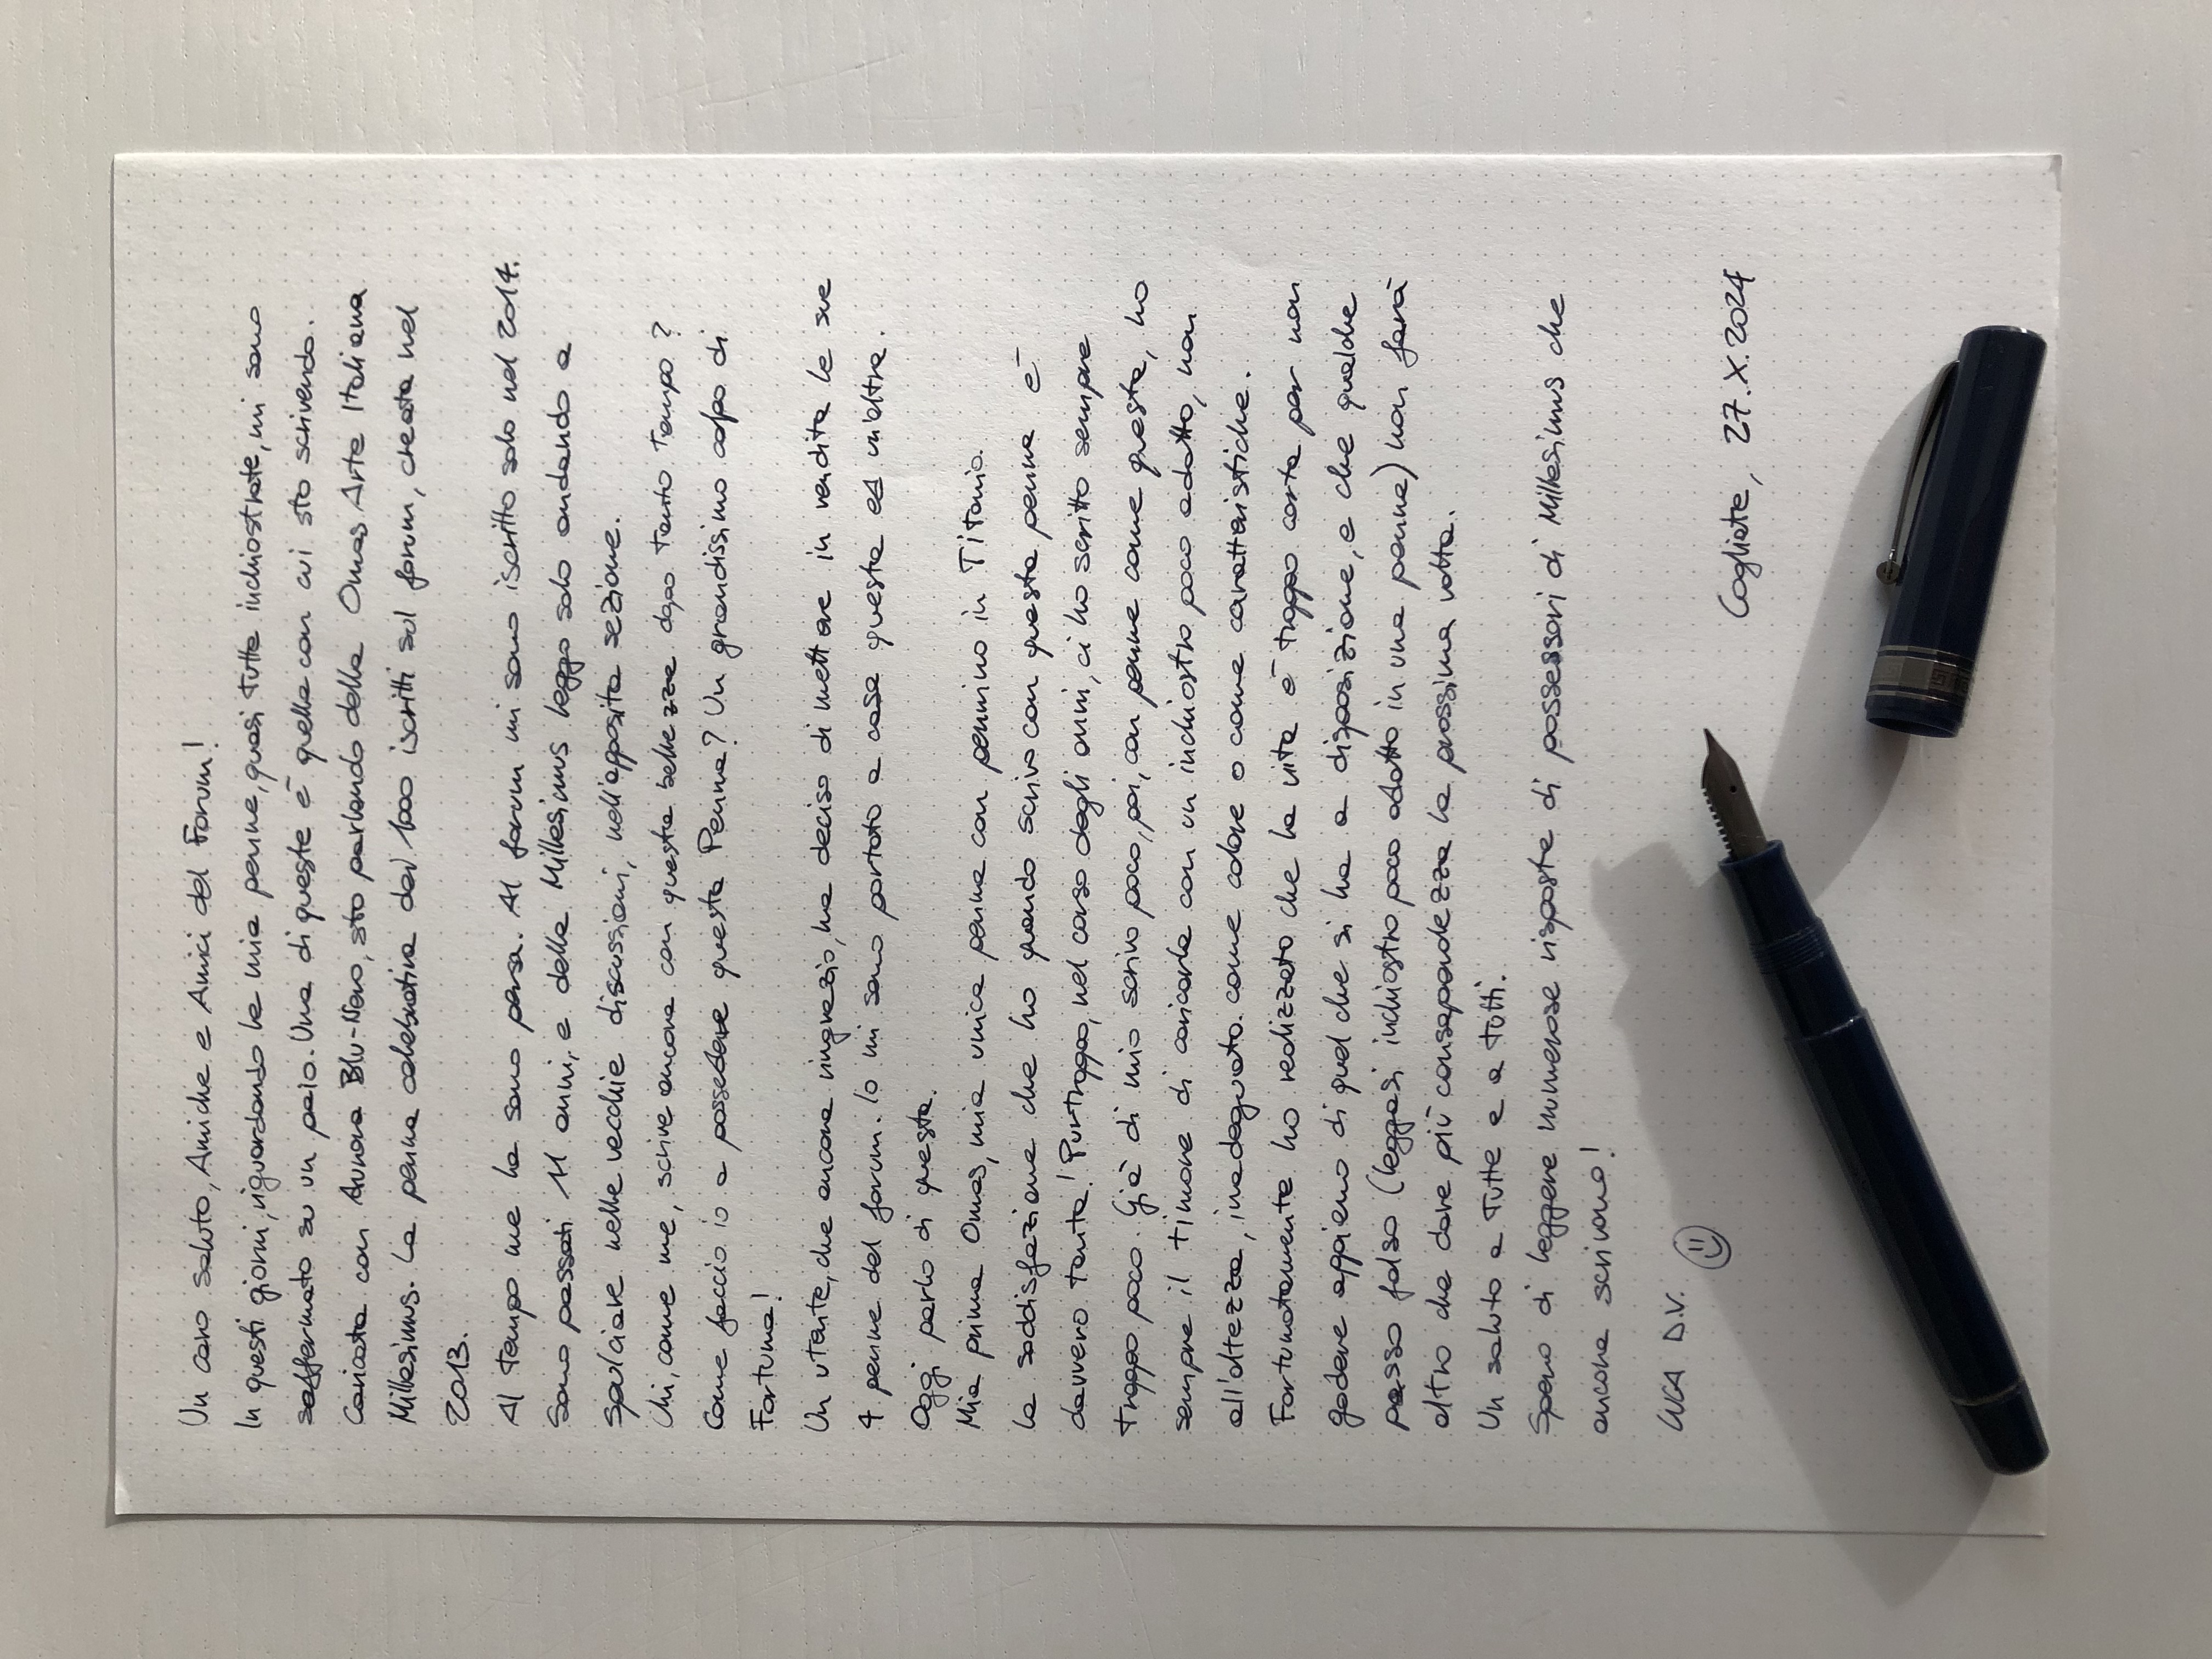 Un caro saluto, Amiche e Amici del Forum!
In questi giorni, riguardando le mie penne, quasi tutte inchiostrate, mi sono
soffermato su un paio. Una di queste è quella con cui sto scrivendo.
Caricata con Aurora Blu-Nero, sto parlando della Omas Arte Italiana
Millesimus. La penna celebrativa dei 1000 iscritti sul forum, creata nel
2013.
Al tempo me la sono persa. Al forum mi sono iscritto solo nel 2014.
Sono passati 11 anni, e della Millesimus leggo solo andando a
spulciare nelle vecchie discussioni, nell'apposita sezione.
Chi, come me, scrive ancora con questa bellezza dopo tanto tempo?
Come faccio io a possedere questa Penna? Un grandissimo colpo di
Fortuna!
Un utente, che ancora ringrazio, ha deciso di mettere in vendita le sue
4 penne del forum. Io mi sono portato a casa questa ed un'altra.
Oggi parlo di questa.
Mia prima Omas, mia unica penna con pennino in Titanio.
La soddisfazione che ho quando scrivo con questa penna è
davvero tanta! Purtroppo, nel corso degli anni, ci ho scritto sempre
troppo poco. Già di mio scrivo poco, poi, con penne come questa, ho
sempre il timore di caricarla con un inchiostro poco adatto, non
all'altezza, inadeguato. come colore o come caratteristiche.
Fortunatamente ho realizzato che la vita è troppo corta per non
godere appieno di quel che si ha a disposizione, e che qualche
passo falso (leggasi inchiostro poco adatto in una penna) non farà
altro che dare più consapevolezza la prossima volta.
Un saluto a Tutte e a Tutti.
Spero di leggere numerose risposte di possessori di Millesimus che
ancora scrivono!
LUCA D.V.
Cogliate, 27.X.2024